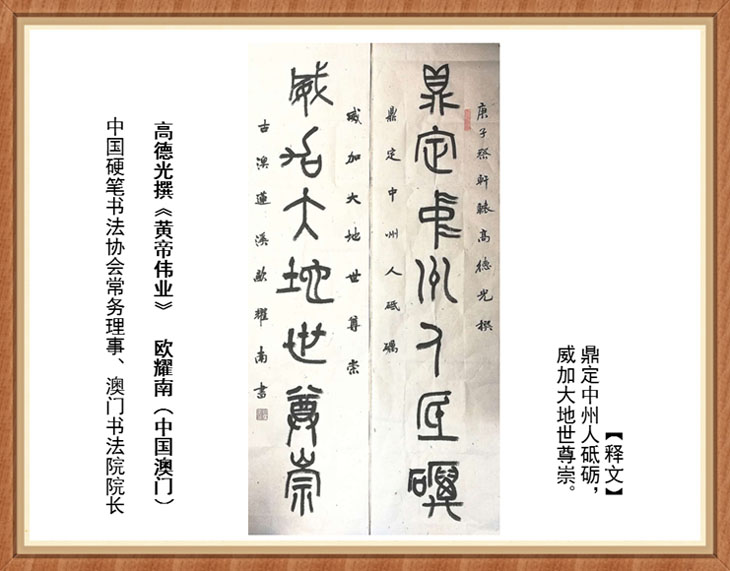 【释文】
鼎定中州人砥砺，
威加大地世尊崇。
庚子祭軒轅高德光撰
鼎定中州人砥礪
鼎定中州人砥礪
威加大地世尊崇
威加大地世尊崇
古濠蓮溪歐耀南書
高德光撰《黄帝伟业》 欧耀南（中国澳门）
中国硬笔书法协会常务理事、澳门书法院院长